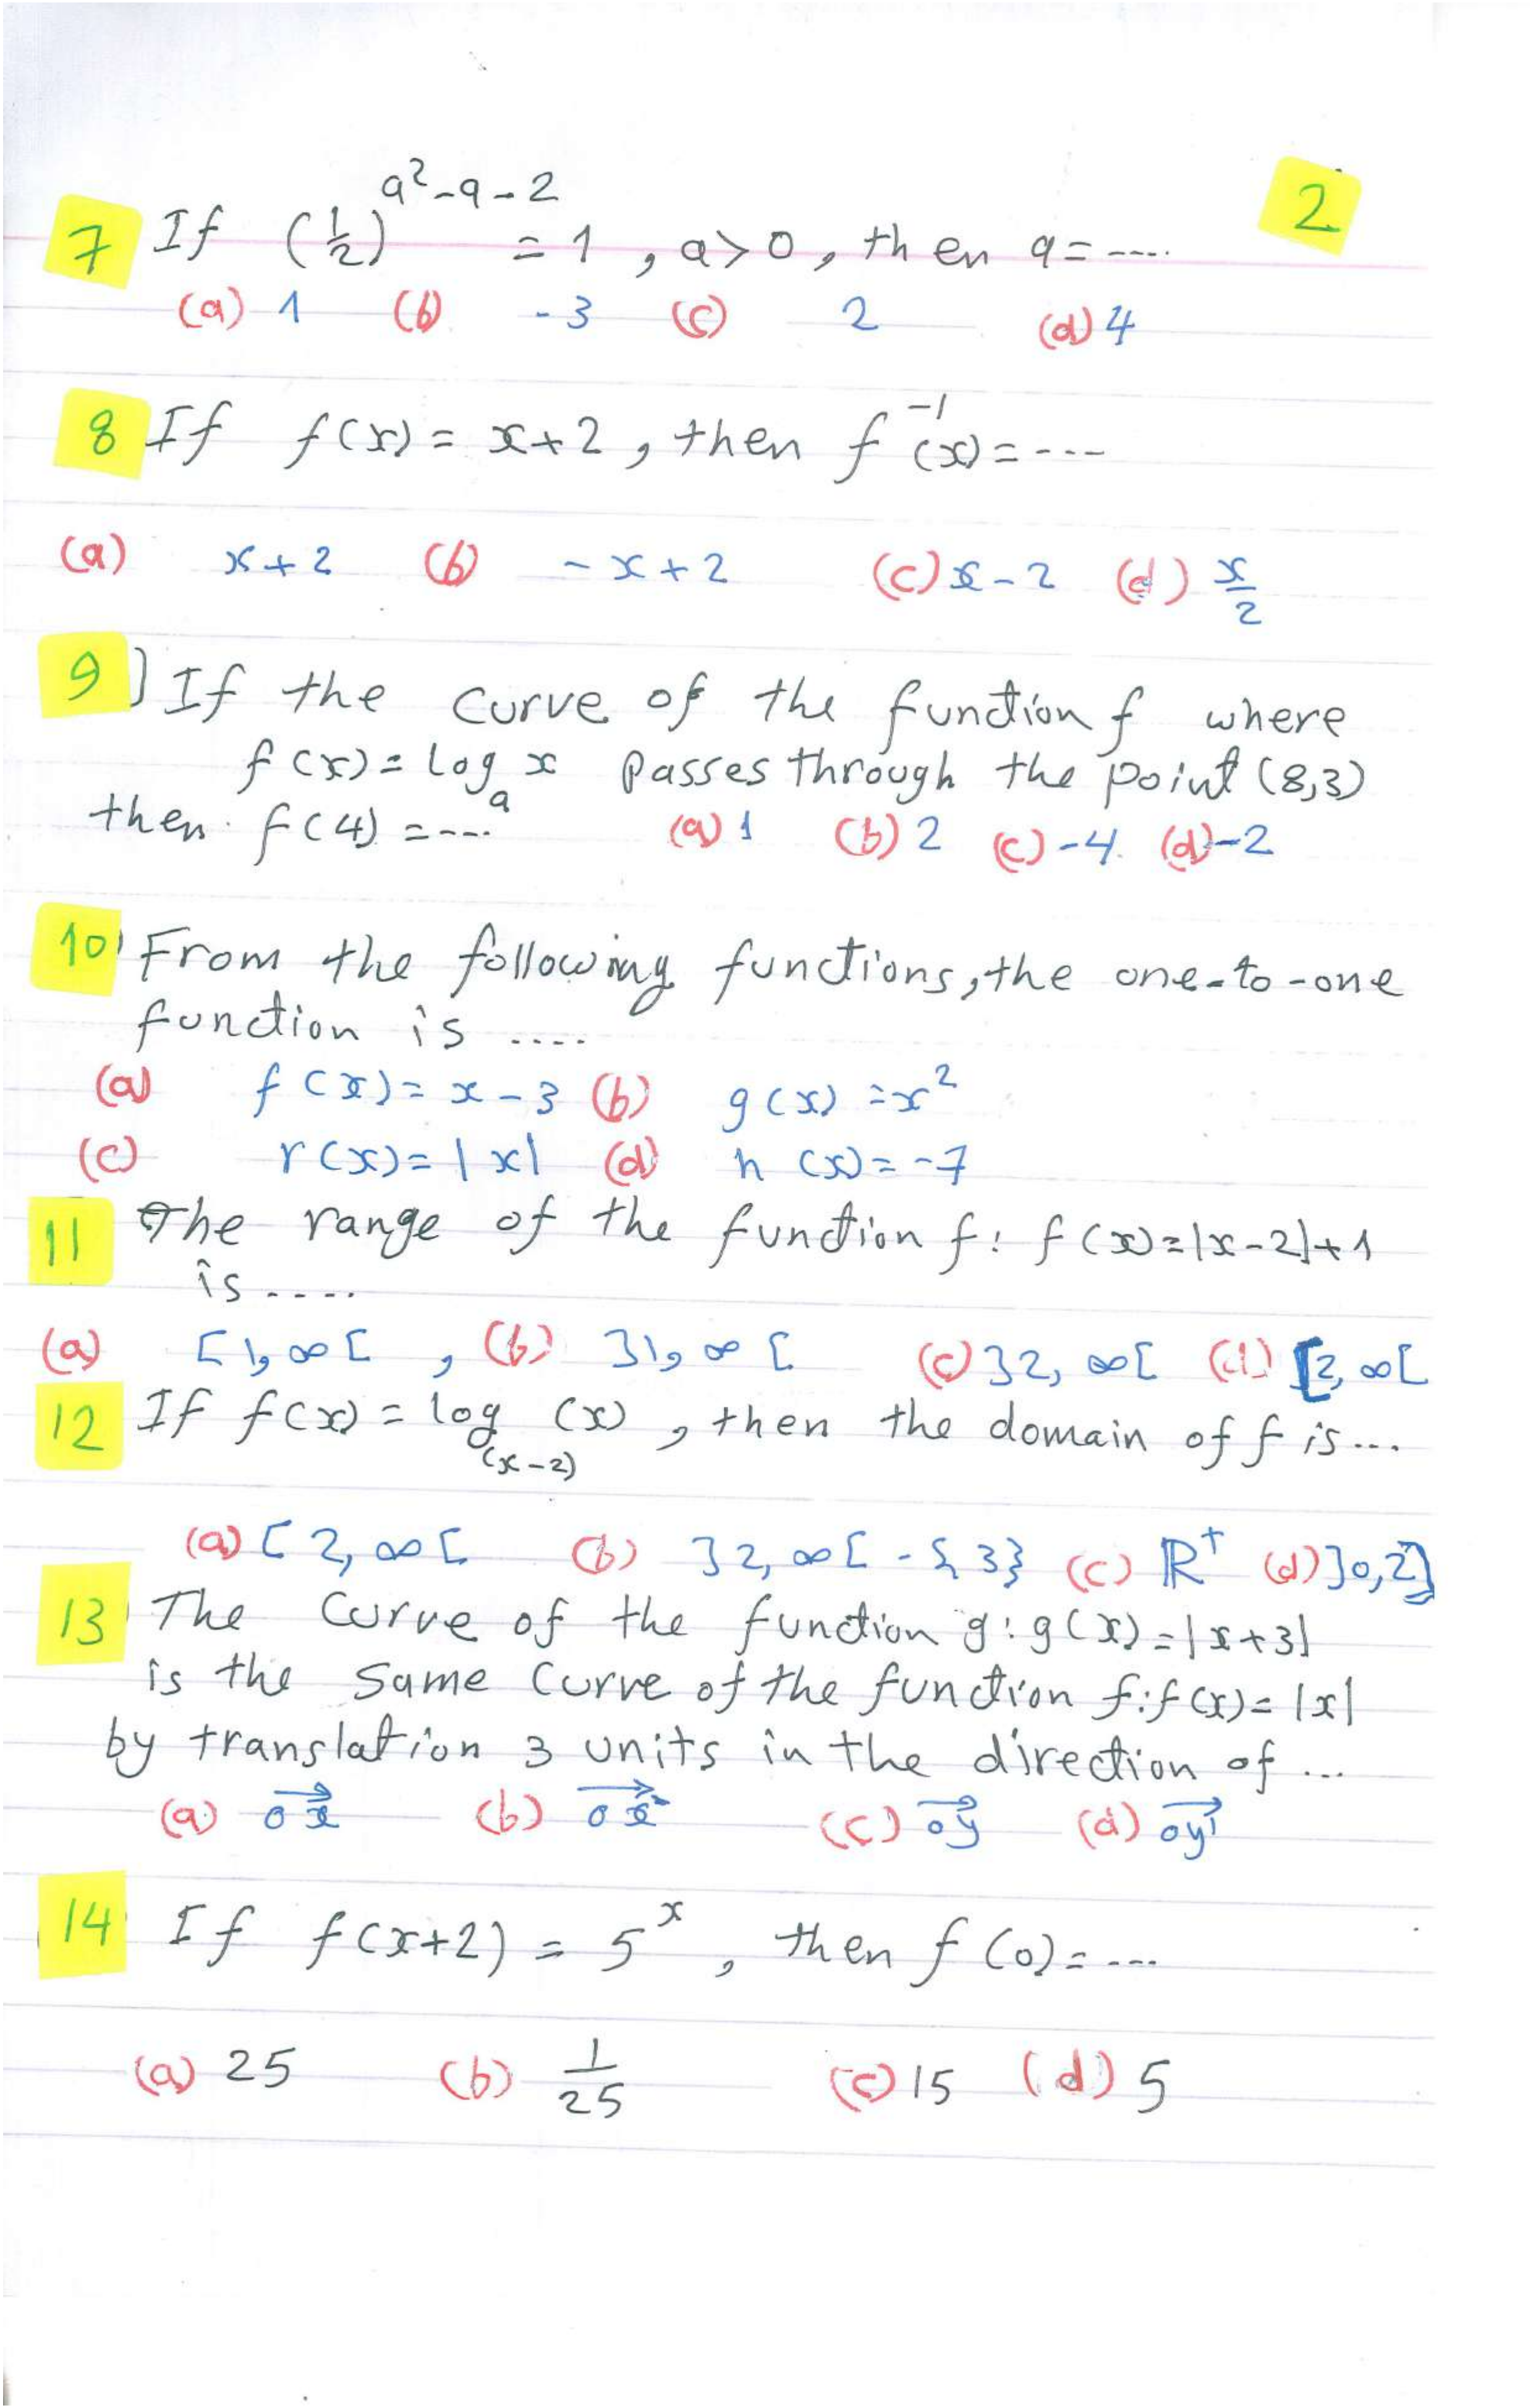 2
7 If (1/2)^(a²-a-2) = 1 , a>0, then a= ----.
(a) 1 (b) -3 (c) 2 (d) 4
8 If f(x) = x+2 , then f⁻¹(x) = ----
(a) x+2 (b) -x+2 (c) x-2 (d) x/2
9) If the curve of the function f where
f(x) = log_a x passes through the point (8,3)
then f(4) = ---- (a) 1 (b) 2 (c) -4 (d) -2
10) From the following functions, the one-to-one
function is ....
(a) f(x) = x-3 (b) g(x) = x²
(c) r(x) = |x| (d) h(x) = -7
11 The range of the function f: f(x)=|x-2|+1
is ....
(a) [1,∞[ , (b) ]1,∞[ (c) ]2,∞[ (d) [2,∞[
12 If f(x) = log_(x-2) (x) , then the domain of f is ...
(a) [2,∞[ (b) ]2,∞[ - {3} (c) ℝ⁺ (d) ]0,2]
13 The curve of the function g: g(x) = |x+3|
is the same curve of the function f: f(x) = |x|
by translation 3 units in the direction of ...
(a) (b) (c) oy (d) oy'
14 If f(x+2) = 5^x , then f(0) = ----
(a) 25 (b) 1/25 (c) 15 (d) 5